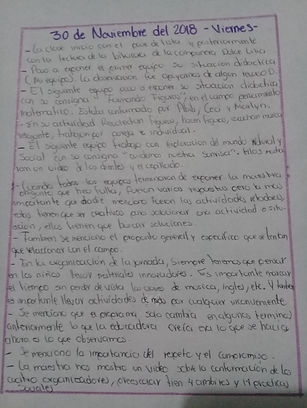 30 de Noviembre del 2018 - Viernes -
- La clase inicio con el pase de lista y posteriormente
con la lectura de la bitacora de la compañera Dulce Lilia
- Paso a exponer el primer equipo su situación didactica
(Mi equipo) la observacion fue apoyarnos de algun
- El siguente equipo paso a exponer su situación didactica
con su consigna "Formando Figuras", en el campo pensamiento
matematico. Estaba conformado por Ceci y
- En su actividad figuras, hacen figuras,
trabajo por pareja e individual.
- El siguente equipo trabajo con Exploración del mundo Natural y
Social con su consigna "cuidemos nuestra sonrisa",
un video de los dientes y el cepillado.
- Cuando todos los equipos terminaron de exponer la maestra
pregunto que tres fueron varias respuestas pero lo mas
importante que donde mencionó fueron las actividades
estas tienen que ser creativas para solucionar una actividad o situ-
ación, ellos tienen que buscar soluciones.
- Tambien se menciono el proposito general y especifico que se tratan
que relacionar con el campo.
- En la organización de la jornada, Siempre tenemos que pensar
en los niños traer materiales innovadores. Es importante marcar
el tiempo sin perder de vista la clase de musica, ingles, etc. Y tambien
es importante llevar actividades de más por cualquier inconveniente.
- Se menciono que el programa solo cambia en algunos terminos
anteriormente lo que la educadora creía era lo que se hacia
ahora es lo que observamos.
- Se menciono la importancia del respeto y el compromiso.
- La maestra nos mostro un video sobre la conformación de los
cuatro organizadores, 4 ambitos y 14 practicas
Sociales